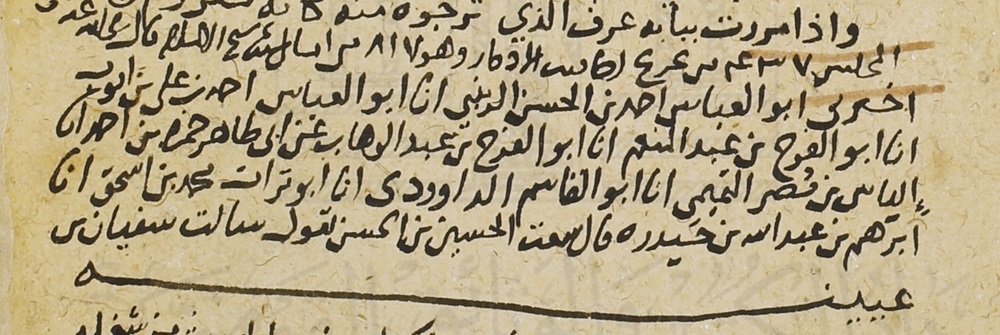 واذا مررت ببابه عرف الذي ترجوه منه كانه
المجلس ٧ من تخريج احاديث الاذكار وهو من امالي شيخ الاسلام قال
اخبرني ابو العباس احمد بن الحسن الزينبي انا ابو العباس احمد بن علي بن ايوب
انا ابو الفرج بن عبد المنعم انا ابو الفرج بن عبد الوهاب عن ابي طاهر حمزه بن احمد انا
الياس بن مضر التميمي انا ابو القاسم الداوودي انا ابو تراب محمد بن اسحق انا
ابرهيم بن عبد الله بن حيدره قال سمعت الحسين بن الحسن يقول سالت سفيان بن
عيينه